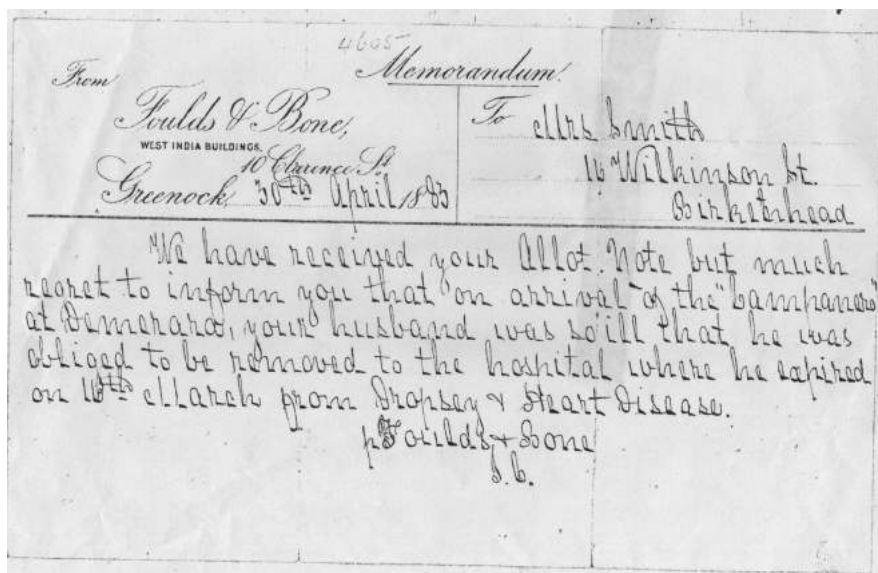 4605
Memorandum.
From
Foulds & Bone,
WEST INDIA BUILDINGS,
10 Clarence St.
Greenock, 30th April 1883
To Mrs Smith
16 Wilkinson St.
Birkenhead
We have received your Allot. Note but much
regret to inform you that on arrival of the "Campanero"
at Demerara, your husband was so ill that he was
obliged to be removed to the hospital where he expired
on 16th March from Dropsey & Heart Disease.
p Foulds & Bone